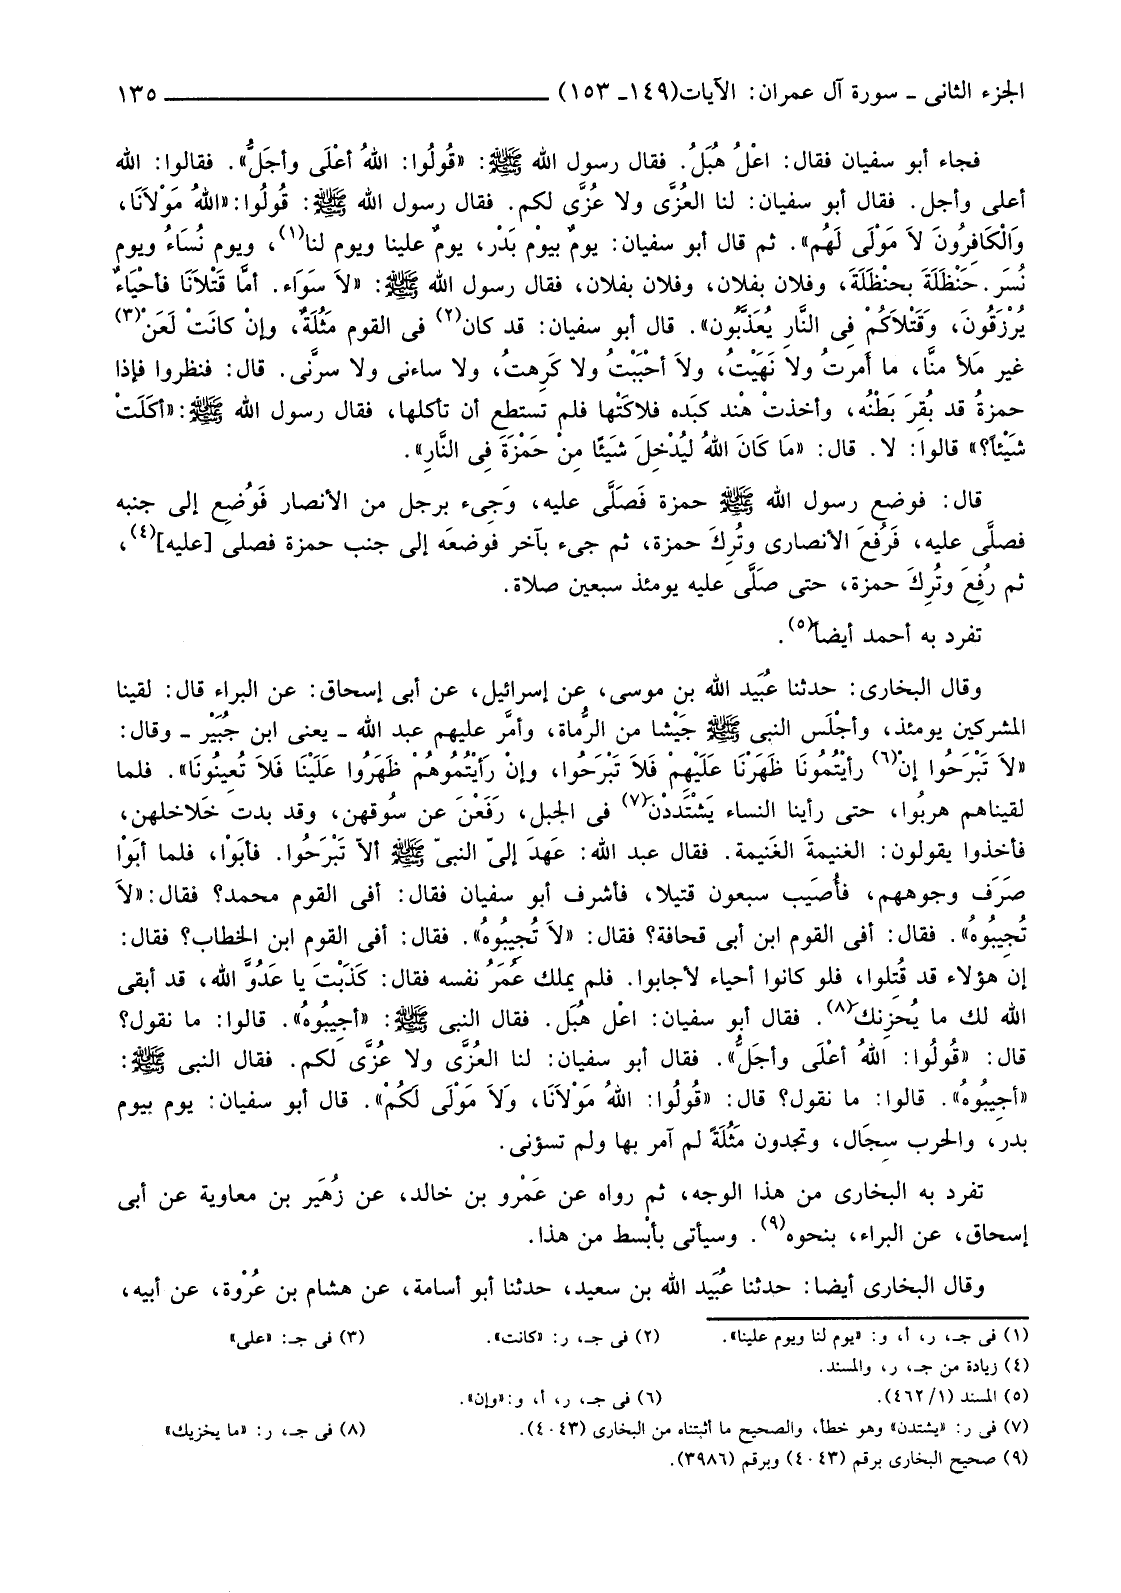 الجزء الثانى ـ سورة آل عمران: الآيات(١٤٩ـ ١٥٣) ١٣٥
فجاء أبو سفيان فقال: اعْلُ هُبَلُ. فقال رسول الله ﷺ: «قُولُوا: اللهُ أعْلَى وأجَلُّ». فقالوا: الله
أعلى وأجل. فقال أبو سفيان: لنا العُزَّى ولا عُزَّى لكم. فقال رسول الله ﷺ: قُولُوا:«اللهُ مَوْلاَنَا،
وَالْكَافِرُونَ لاَ مَوْلَى لَهُم». ثم قال أبو سفيان: يومٌ بيوْمِ بَدْر، يومٌ علينا ويوم لنا(١)، ويوم نُسَاءُ ويوم
نُسَر. حَنْظَلَةَ بحنْظَلَةَ، وفلان بفلان، وفلان بفلان، فقال رسول الله ﷺ: «لاَ سَوَاء. أمَّا قَتْلاَنَا فأحْيَاءٌ
يُرْزَقُونَ، وَقَتْلاَكُمْ فِى النَّارِ يُعَذَّبُون». قال أبو سفيان: قد كان(٢) فى القوم مَثُلَةٌ، وإنْ كانَتْ لَعَنْ(٣)
غير مَلأ منَّا، ما أمَرتُ ولا نَهَيْتُ، ولاَ أحْبَبْتُ ولا كَرِهتُ، ولا ساءنى ولا سرَّنى. قال: فنظروا فإذا
حمزةُ قد بُقِرَ بَطْنُه، وأخذتْ هْند كبَده فلاكَتْها فلم تستطع أن تأكلها، فقال رسول الله ﷺ:«أكَلَتْ
شَيْئاً؟» قالوا: لا. قال: «مَا كَانَ اللهُ لِيُدْخِلَ شَيئًا مِنْ حَمْزَةَ فِى النَّارِ».
قال: فوضع رسول الله ﷺ حمزة فَصَلَّى عليه، وَجِىء برجل من الأنصار فَوُضِع إلى جنبه
فصلَّى عليه، فَرُفعَ الأنصارى وتُرِكَ حمزة، ثم جىء بآخر فوضعَه إلى جنب حمزة فصلى [عليه](٤)،
ثم رُفِعَ وتُرِكَ حمزة، حتى صَلَّى عليه يومئذ سبعين صلاة.
تفرد به أحمد أيضا(٥).
وقال البخارى: حدثنا عُبَيد الله بن موسى، عن إسرائيل، عن أبى إسحاق: عن البراء قال: لقينا
المشركين يومئذ، وأجْلَس النبى ﷺ جَيْشا من الرُّماة، وأمَّر عليهم عبد الله ـ يعنى ابن جُبَيْر ـ وقال:
«لاَ تَبْرَحُوا إن(٦) رأيْتُمُونَا ظَهَرْنَا عَلَيْهِمْ فَلاَ تَبْرَحُوا، وإنْ رَأيْتُمُوهُمْ ظَهَرُوا عَلَيْنَا فَلاَ تُعِينُونَا». فلما
لقيناهم هربُوا، حتى رأينا النساء يَشْتَددْنَ(٧) فى الجبل، رَفَعْنَ عن سُوقهن، وقد بدت خَلاخلهن،
فأخذوا يقولون: الغنيمةَ الغَنيمة. فقال عبد الله: عَهدَ إلىّ النبىّ ﷺ ألاّ تَبْرَحُوا. فأبَوْا، فلما أبَوْا
صَرَف وجوههم، فأُصيَب سبعون قتيلا، فأشرف أبو سفيان فقال: أفى القوم محمد؟ فقال:«لاَ
تُجيبُوهُ». فقال: أفى القوم ابن أبى قحافة؟ فقال: «لاَ تُجِيبُوهُ». فقال: أفى القوم ابن الخطاب؟ فقال:
إن هؤلاء قد قُتِلوا، فلو كانوا أحياء لأجابوا. فلم يملك عُمَرُ نفسه فقال: كَذَبْتَ يا عَدُوَّ الله، قد أبقى
الله لك ما يُحزِنك(٨). فقال أبو سفيان: اعْل هُبَل. فقال النبى ﷺ: «أجِيبُوهُ». قالوا: ما نقول؟
قال: «قُولُوا: اللهُ أعْلَى وأجَلُّ». فقال أبو سفيان: لنا العُزَّى ولا عُزَّى لكم. فقال النبى ﷺ:
«أجِيبُوهُ». قالوا: ما نقول؟ قال: «قُولُوا: اللهُ مَوْلاَنَا، وَلاَ مَوْلَى لَكُمْ». قال أبو سفيان: يوم بيوم
بدر، والحرب سِجَال، وتجدون مَثُلَةً لم آمر بها ولم تسؤنى.
تفرد به البخارى من هذا الوجه، ثم رواه عن عَمْرو بن خالد، عن زُهَير بن معاوية عن أبى
إسحاق، عن البراء، بنحوه(٩). وسيأتى بأبْسط من هذا.
وقال البخارى أيضا: حدثنا عُبَيد الله بن سعيد، حدثنا أبو أسامة، عن هشام بن عُرْوة، عن أبيه،
(١) فى جـ، ر، أ، و: «يوم لنا ويوم علينا». (٢) فى جـ، ر: «كانت». (٣) فى جـ: «على»
(٤) زيادة من جـ، ر، والمسند.
(٥) المسند (١/ ٤٦٢). (٦) فى جـ، ر، أ، و:«وإن».
(٧) فى ر: «يشتدن» وهو خطأ، والصحيح ما أثبتناه من البخارى (٤٠٤٣). (٨) فى جـ، ر: «ما يخزيك»
(٩) صحيح البخارى برقم (٤٠٤٣) وبرقم (٣٩٨٦).